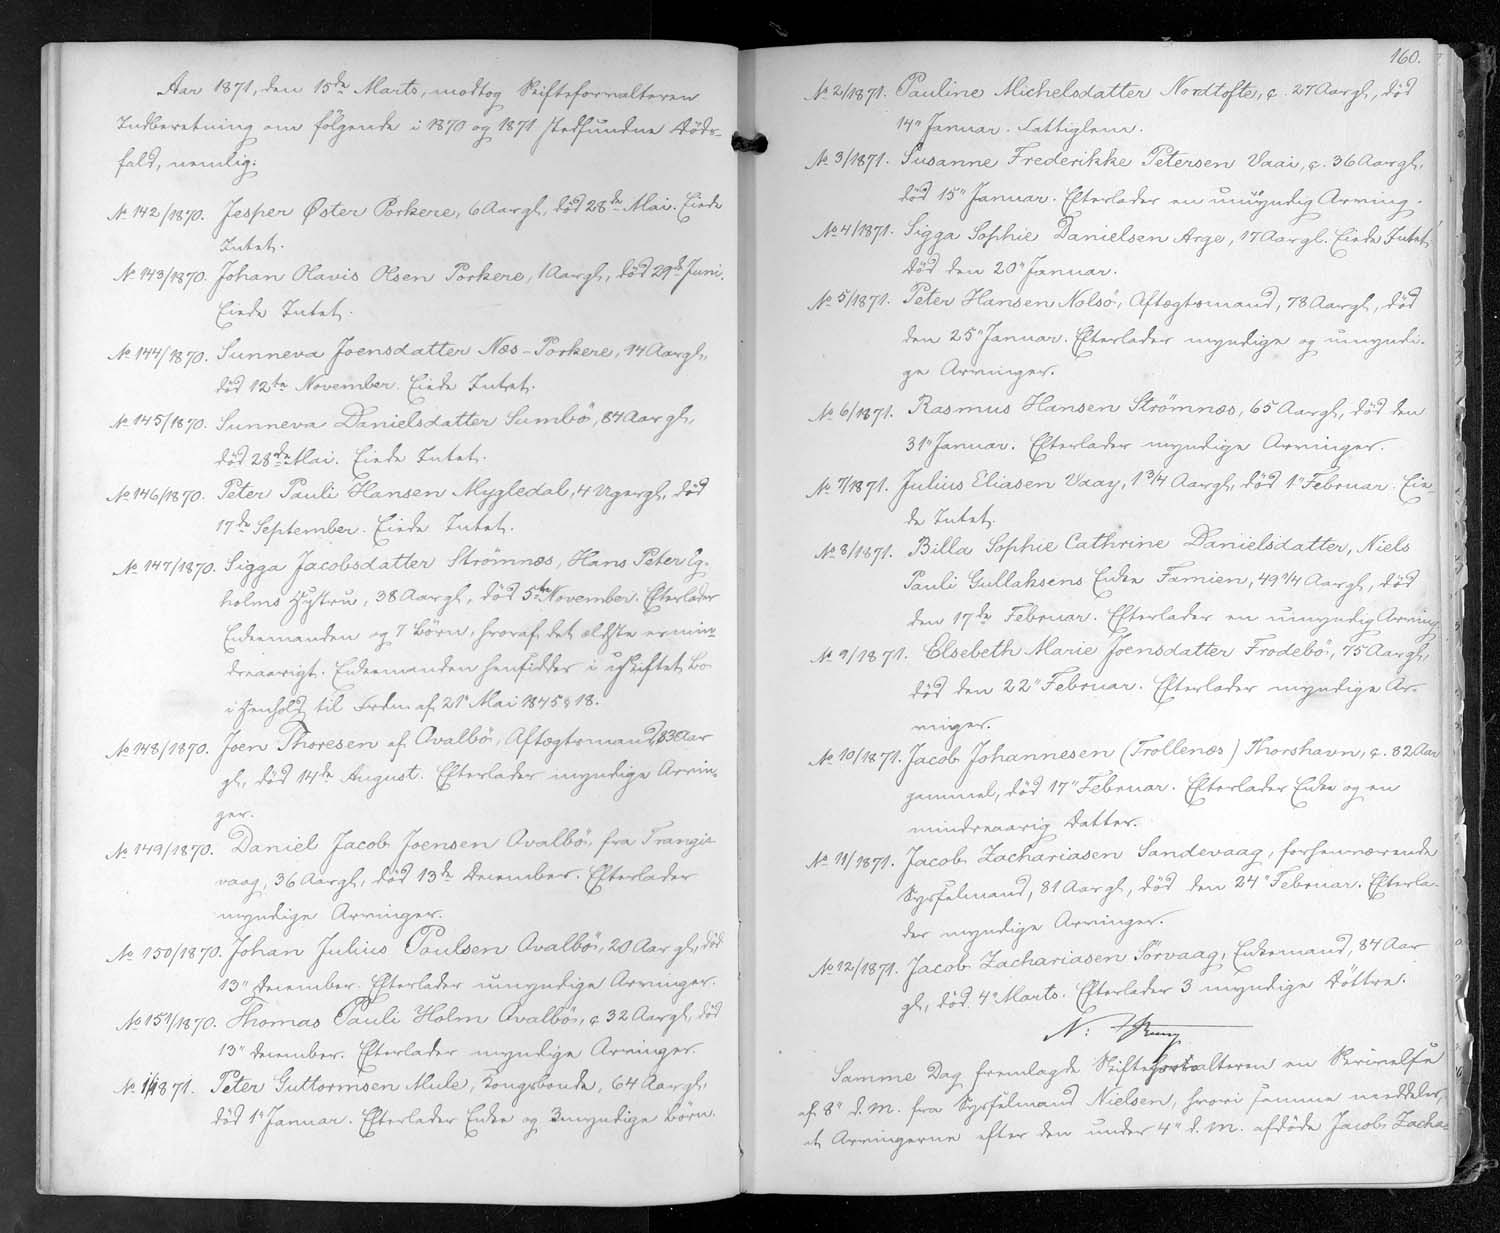 Aar 1871, den 15de Marts, modtog Skifteforvalteren
Indberetning om følgende i 1870 og 1871 stedfundne Døds-
fald, nemlig:
No 142/1870. Jesper Øster Porkere, 6 Aar gl., død 28de Mai. Eiede
Intet.
No 143/1870. Johan Olavis Olsen Porkere, 1 Aar gl., død 29de Juni.
Eiede Intet.
No 144/1870. Sunneva Joensdatter Næs-Porkere, 14 Aar gl.,
død 12te November. Eiede Intet.
No 145/1870. Sunneva Danielsdatter Sumbö, 84 Aar gl.,
død 28de Mai. Eiede Intet.
No 146/1870. Peter Pauli Hansen Mygledal, 4 Uger gl., død
17de September. Eiede Intet.
No 147/1870. Sigga Jacobsdatter Strömnæs, Hans Peter Eg-
holms Hustru, 38 Aar gl., død 5te November. Efterlader
Enkemanden og 7 Börn, hvoraf det ældste er min-
dreaarigt. Enkemanden hensidder i uskiftet Bo
i Henhold til Frdn af 21de Mai 1845 § 18.
No 148/1870. Joen Thoresen af Qvalbö, Aftægtsmand, 83 Aar
gl., død 14de August. Efterlader myndige Arvin-
ger.
No 149/1870. Daniel Jacob Joensen Qvalbö, fra Trangis-
vaag, 36 Aar gl., død 13de December. Efterlader
myndige Arvinger.
No 150/1870. Johan Julius Poulsen Qvalbö, 20 Aar gl., død
13" December. Efterlader umyndige Arvinger.
No 151/1870. Thomas Pauli Holm Qvalbö, c. 32 Aar gl., død
13" December. Efterlader myndige Arvinger.
No 1/1871. Peter Guttormsen Mule, Kongsbonde, 64 Aar gl.,
død 1" Januar. Efterlader Enke og 3 myndige Börn.
160.
No 2/1871. Pauline Michelsdatter Nordtofte, c. 27 Aar gl., død
14" Januar. Fattiglem.
No 3/1871. Susanne Frederikke Petersen Vaai, c. 36 Aar gl.,
død 15" Januar. Efterlader en umyndig Arving.
No 4/1871. Sigga Sophie Danielsen Arge, 17 Aar gl. Eiede Intet,
død den 20" Januar.
No 5/1871. Peter Hansen Nolsö, Aftægtsmand, 78 Aar gl., død
den 25" Januar. Efterlader myndige og umyndi-
ge Arvinger.
No 6/1871. Rasmus Hansen Strömnæs, 65 Aar gl., død den
31" Januar. Efterlader myndige Arvinger.
No 7/1871. Julius Eliasen Vaay, 1 3/4 Aar gl., død 1" Februar. Eie-
de Intet.
No 8/1871. Billa Sophie Cathrine Danielsdatter, Niels
Pauli Gullaksens Enke Famien, 49 3/4 Aar gl., død
den 17de Februar. Efterlader en umyndig Arving.
No 9/1871. Elsebeth Marie Joensdatter Frodebö, 75 Aar gl.,
død den 22" Februar. Efterlader myndige Ar-
vinger.
No 10/1871. Jacob Johannesen (Trollenæs) Thorshavn, c. 82 Aar
gammel, død 17" Februar. Efterlader Enke og en
mindreaarig Datter.
No 11/1871. Jacob Zachariasen Sandevaag, forhenværende
Sysselmand, 81 Aar gl., død den 24" Februar. Efterla-
der myndige Arvinger.
No 12/1871. Jacob Zachariasen Sörvaag, Enkemand, 84 Aar
gl., død 4" Marts. Efterlader 3 myndige Döttre.
Samme Dag fremlagde Skifteforvalteren en Skrivelse
af 8" d. M. fra Sysselmand Nielsen, hvori samme meddeler,
at Arvingerne efter den under 4" d. M. afdöde Jacob Zacha-